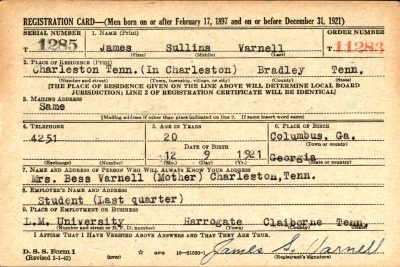 REGISTRATION CARD—(Men born on or after February 17, 1897 and on or before December 31, 1921)
SERIAL NUMBER
1. NAME (Print)
ORDER NUMBER
T 1285
James Sullins Varnell
T 11283
(First) (Middle) (Last)
2. PLACE OF RESIDENCE (Print)
Charleston Tenn.(In Charleston) Bradley Tenn.
(Number and street) (Town, township, village, or city) (County) (State)
[THE PLACE OF RESIDENCE GIVEN ON THE LINE ABOVE WILL DETERMINE LOCAL BOARD
JURISDICTION; LINE 2 OF REGISTRATION CERTIFICATE WILL BE IDENTICAL]
3. MAILING ADDRESS
Same
[Mailing address if other than place indicated on line 2. If same insert word same]
4. TELEPHONE
5. AGE IN YEARS
6. PLACE OF BIRTH
4251
20
Columbus, Ga.
DATE OF BIRTH
(Town or county)
12 9 1921
Georgia
(Exchange) (Number)
(Mo.) (Day) (Yr.)
(State or country)
7. NAME AND ADDRESS OF PERSON WHO WILL ALWAYS KNOW YOUR ADDRESS
Mrs. Bess Varnell (Mother) Charleston,Tenn.
8. EMPLOYER'S NAME AND ADDRESS
Student (Last quarter)
9. PLACE OF EMPLOYMENT OR BUSINESS
L.M. University Harrogate Claiborne Tenn.
(Number and street or R. F. D. number) (Town) (County) (State)
I AFFIRM THAT I HAVE VERIFIED ABOVE ANSWERS AND THAT THEY ARE TRUE.
D. S. S. Form 1
(Revised 1-1-42)
(over)
GPO
James S. Varnell
(Registrant's signature)